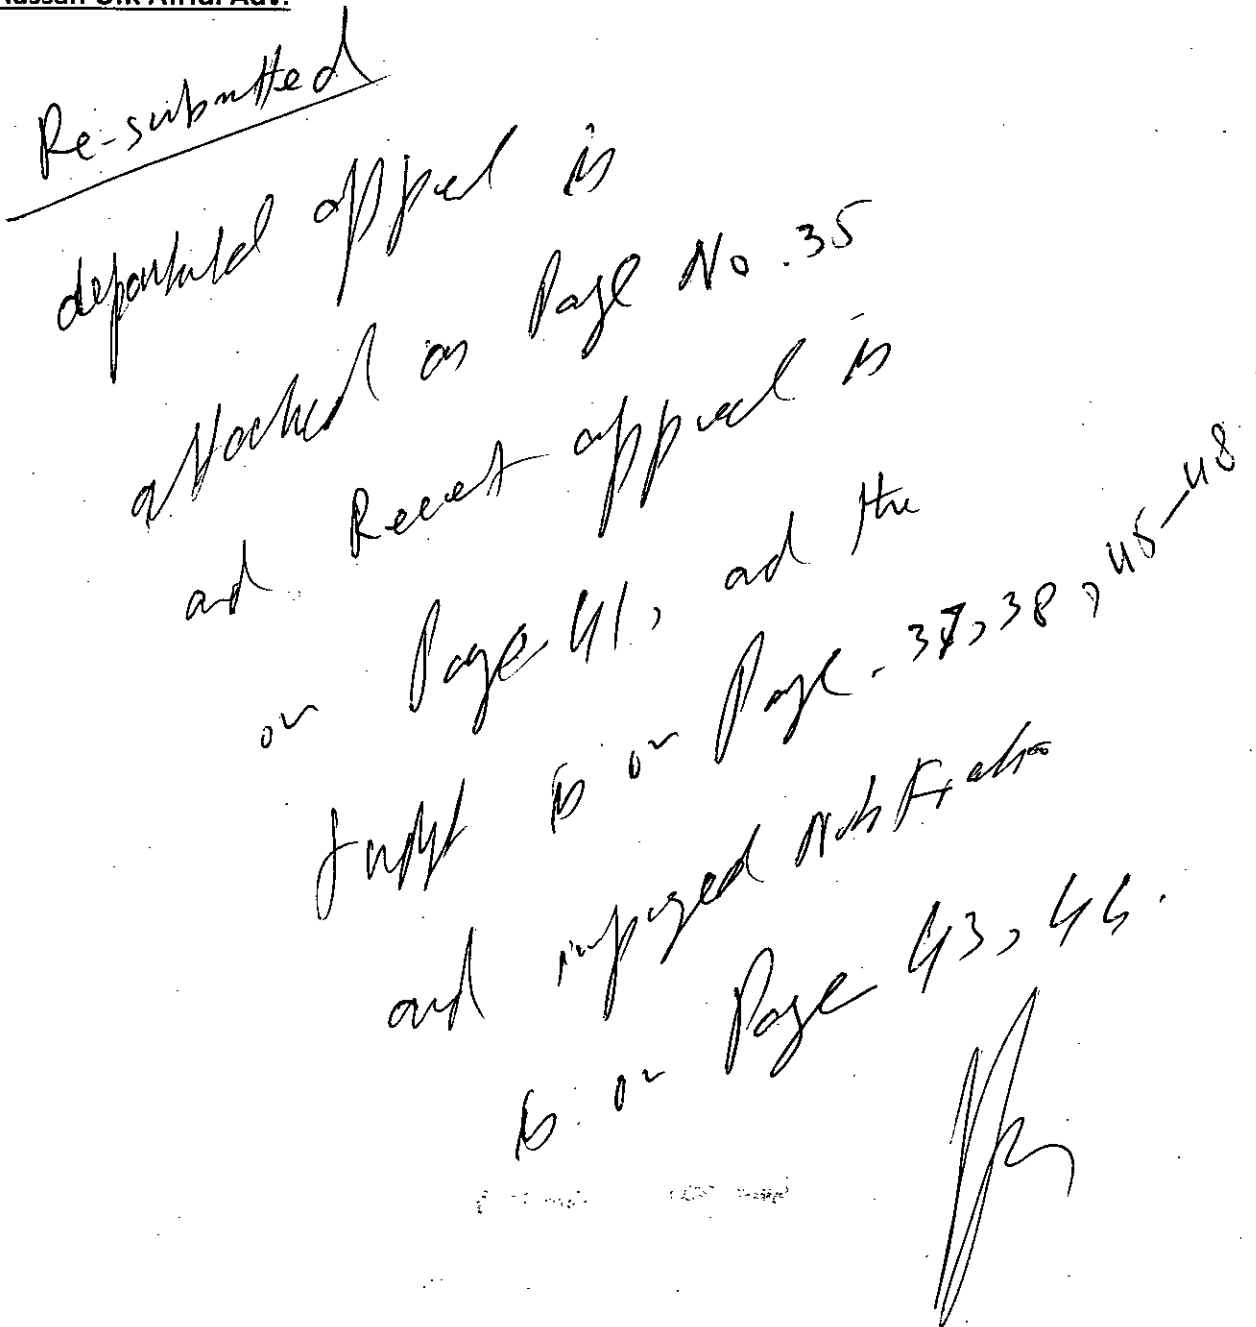 Hassan U.K Afridi Adv.
Re-submitted
departmental appeal is
attached on Page No. 35
and Recent appeal is
on Page 41, and the
is on Page. 37, 38, 45-48
and impugned Notification
is on Page 43, 44.